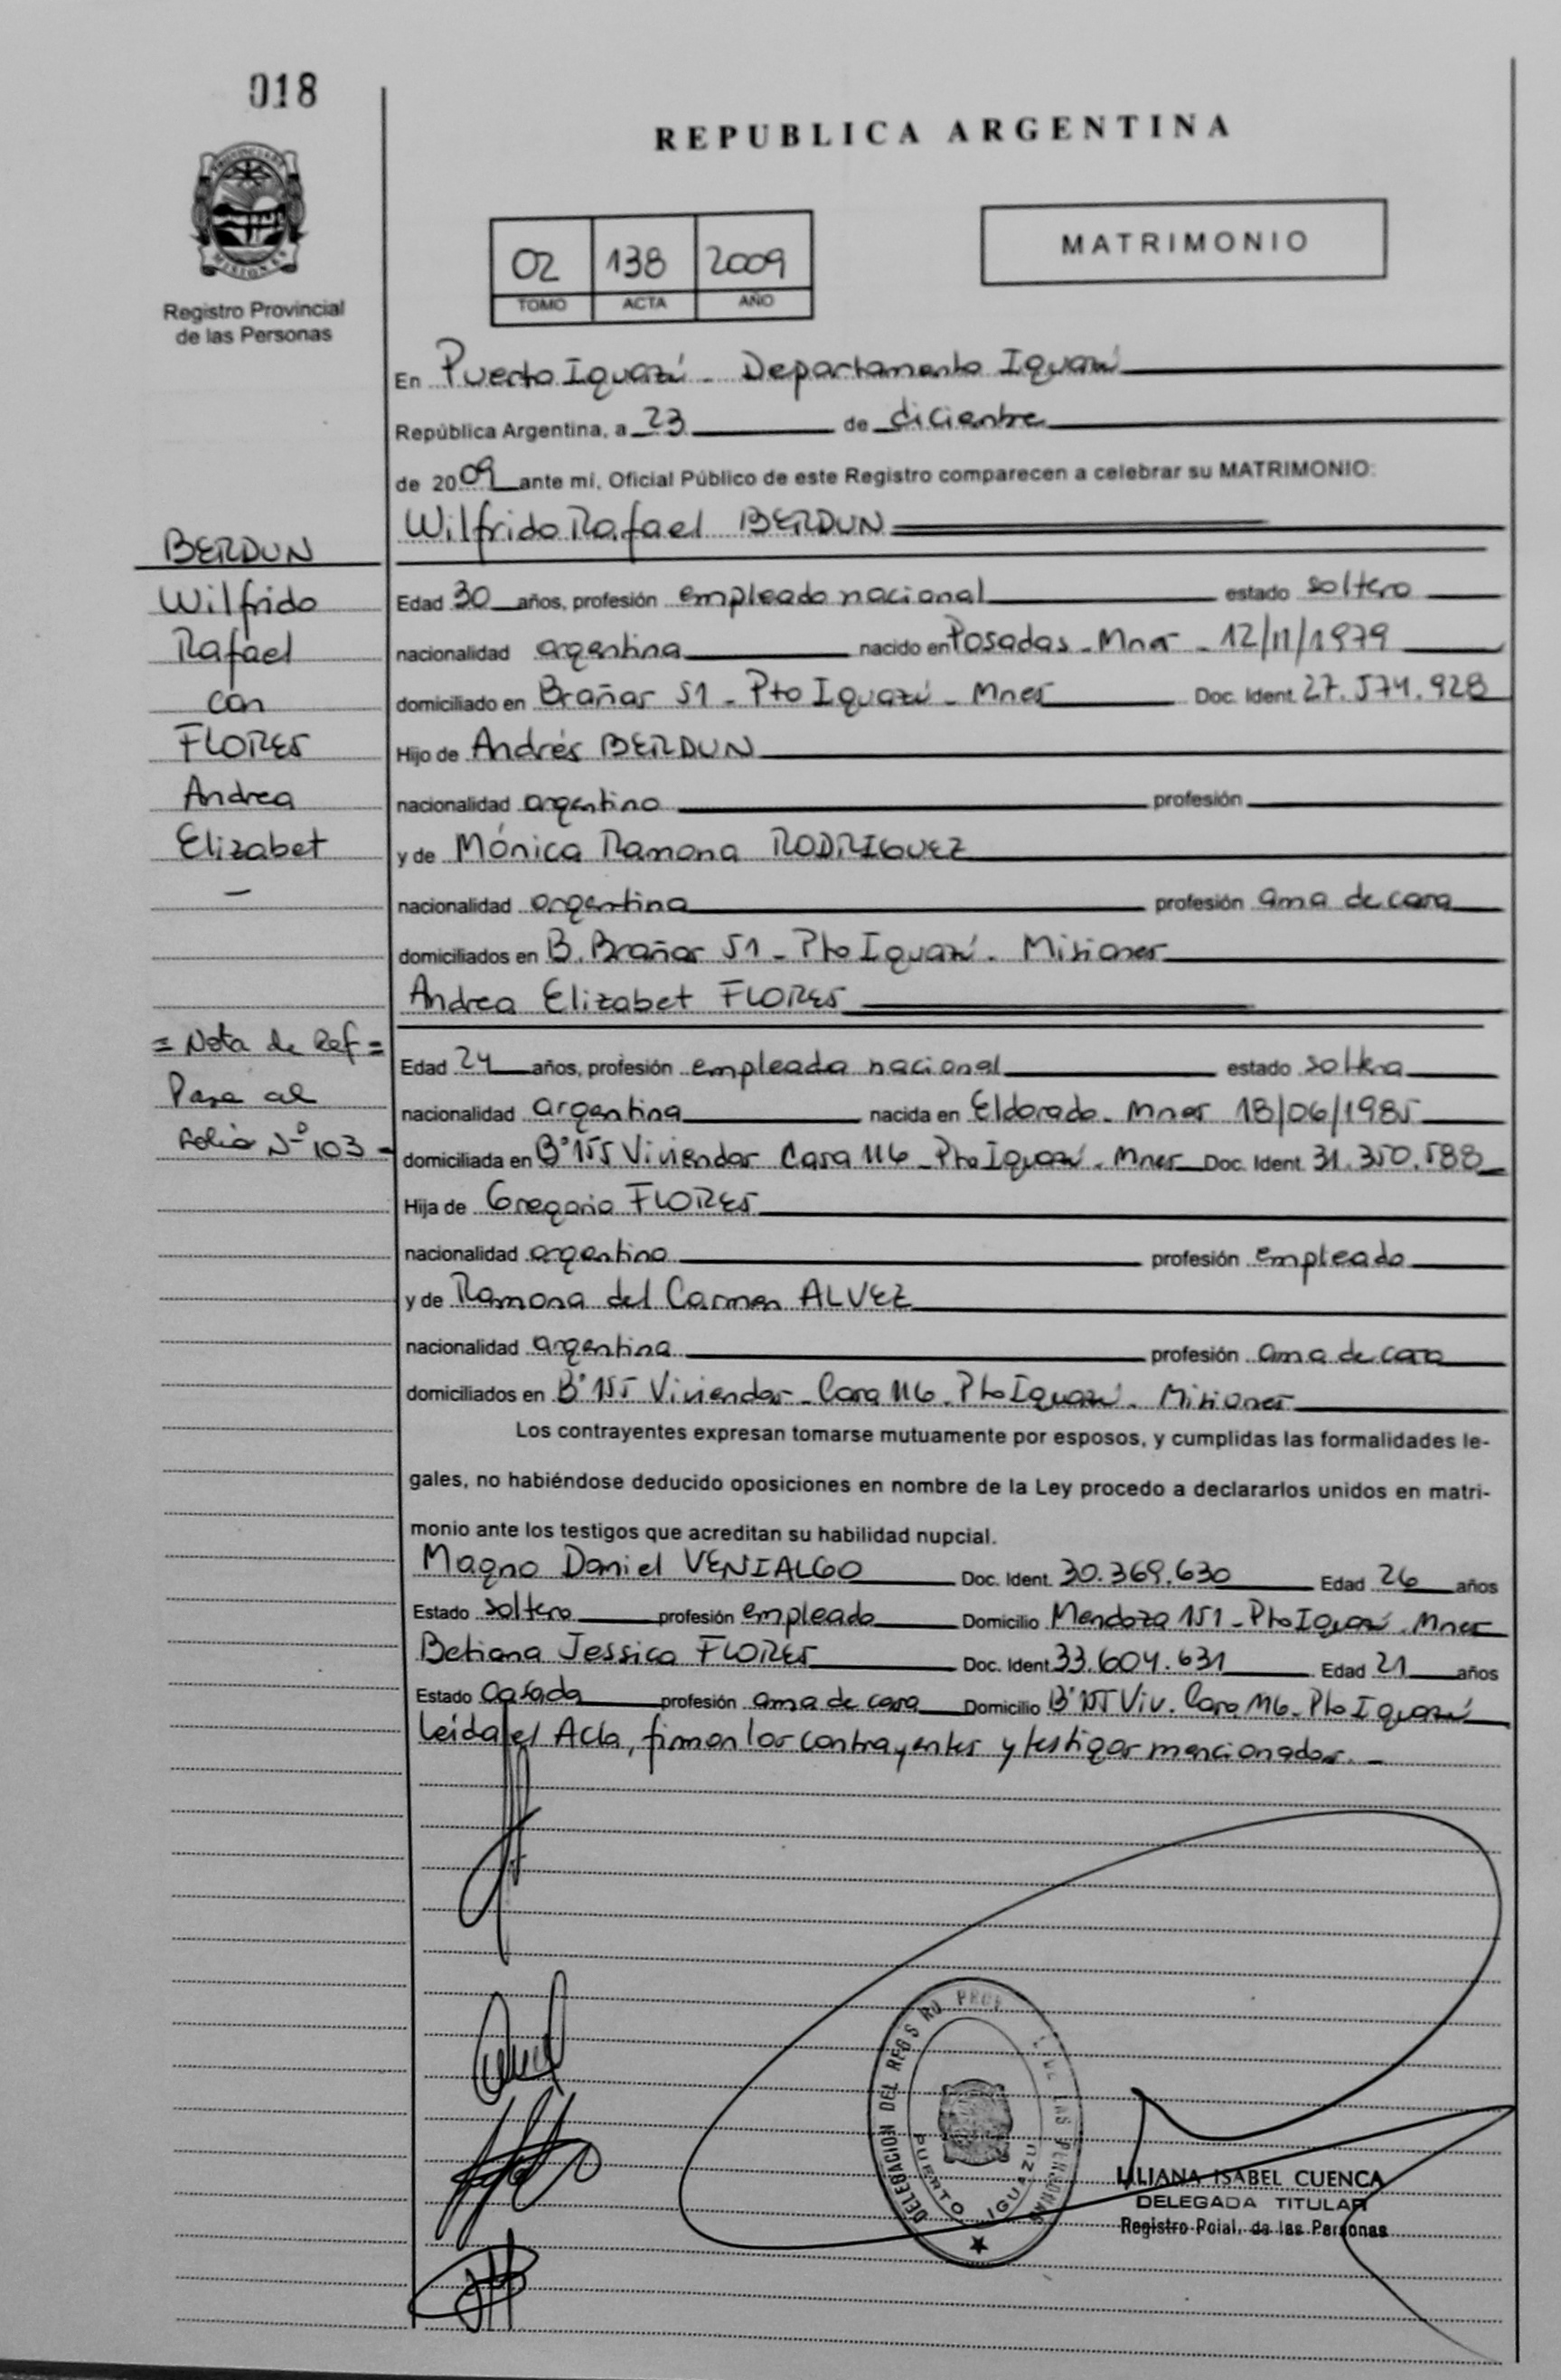 018
REPUBLICA ARGENTINA
PROVINCIA DE MISIONES
Registro Provincial
de las Personas
02 138 2009
TOMO ACTA AÑO
MATRIMONIO
En Puerto Iguazú - Departamento Iguazú
República Argentina, a 23 de diciembre
de 2009 ante mí, Oficial Público de este Registro comparecen a celebrar su MATRIMONIO:
Wilfrido Rafael BERDUN
BERDUN
Wilfrido
Rafael
con
FLORES
Andrea
Elizabet
-
Edad 30 años, profesión empleado nacional estado soltero
nacionalidad argentina nacido en Posadas - Mnes - 12/11/1979
domiciliado en Brañas 51 - Pto Iguazú - Mnes Doc. Ident. 27.574.928
Hijo de Andrés BERDUN
nacionalidad argentino profesión
y de Mónica Ramona RODRIGUEZ
nacionalidad argentina profesión ama de casa
domiciliados en B. Brañas 51 - Pto Iguazú - Misiones
Andrea Elizabet FLORES
= Nota de Ref =
Pasa al
folio Nº 103 -
Edad 24 años, profesión empleada nacional estado soltera
nacionalidad argentina nacida en Eldorado - Mnes 18/06/1985
domiciliada en Bº 155 Viviendas Casa 116 - Pto Iguazú - Mnes Doc. Ident. 31.350.588
Hija de Gregorio FLORES
nacionalidad argentino profesión empleado
y de Ramona del Carmen ALVEZ
nacionalidad argentina profesión ama de casa
domiciliados en Bº 155 Viviendas - Casa 116 - Pto Iguazú - Misiones
Los contrayentes expresan tomarse mutuamente por esposos, y cumplidas las formalidades le-
gales, no habiéndose deducido oposiciones en nombre de la Ley procedo a declararlos unidos en matri-
monio ante los testigos que acreditan su habilidad nupcial.
Magno Daniel VENIALGO Doc. Ident. 30.369.630 Edad 26 años
Estado soltero profesión empleado Domicilio Mendoza 151 - Pto Iguazú - Mnes
Betiana Jessica FLORES Doc. Ident 33.604.631 Edad 21 años
Estado casada profesión ama de casa Domicilio Bº 155 Viv. Casa 116 - Pto Iguazú
Leída el Acta, firman los contrayentes y testigos mencionados. -
DELEGACION DEL REGISTRO PROV. DE LAS PERSONAS
PUERTO IGUAZU
LILIANA ISABEL CUENCA
DELEGADA TITULAR
Registro Pcial. de las Personas